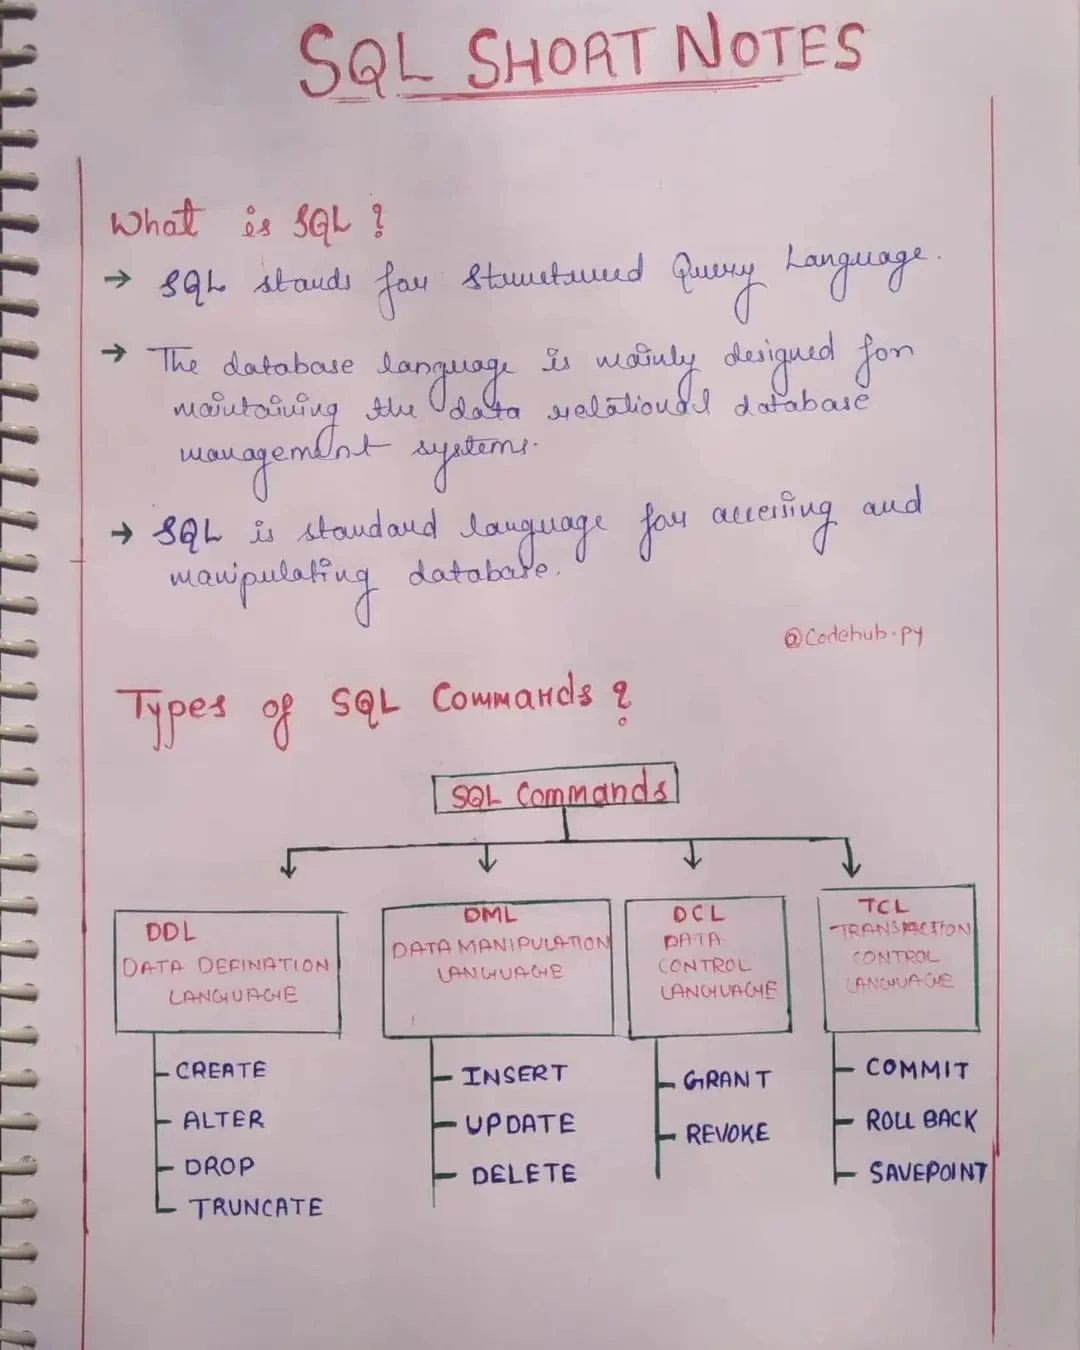 SQL SHORT NOTES
What is SQL?
→ SQL stands for Structured Query Language.
→ The database language is mainly designed for
maintaining the data relational database
management systems.
→ SQL is standard language for accessing and
manipulating database.
@Codehub.py
Types of SQL Commands?
SQL Commands
DDL
DATA DEFINATION
LANGUAGE
CREATE
ALTER
DROP
TRUNCATE
DML
DATA MANIPULATION
LANGUAGE
INSERT
UPDATE
DELETE
DCL
DATA
CONTROL
LANGUAGE
GRANT
REVOKE
TCL
TRANSACTION
CONTROL
LANGUAGE
COMMIT
ROLL BACK
SAVEPOINT